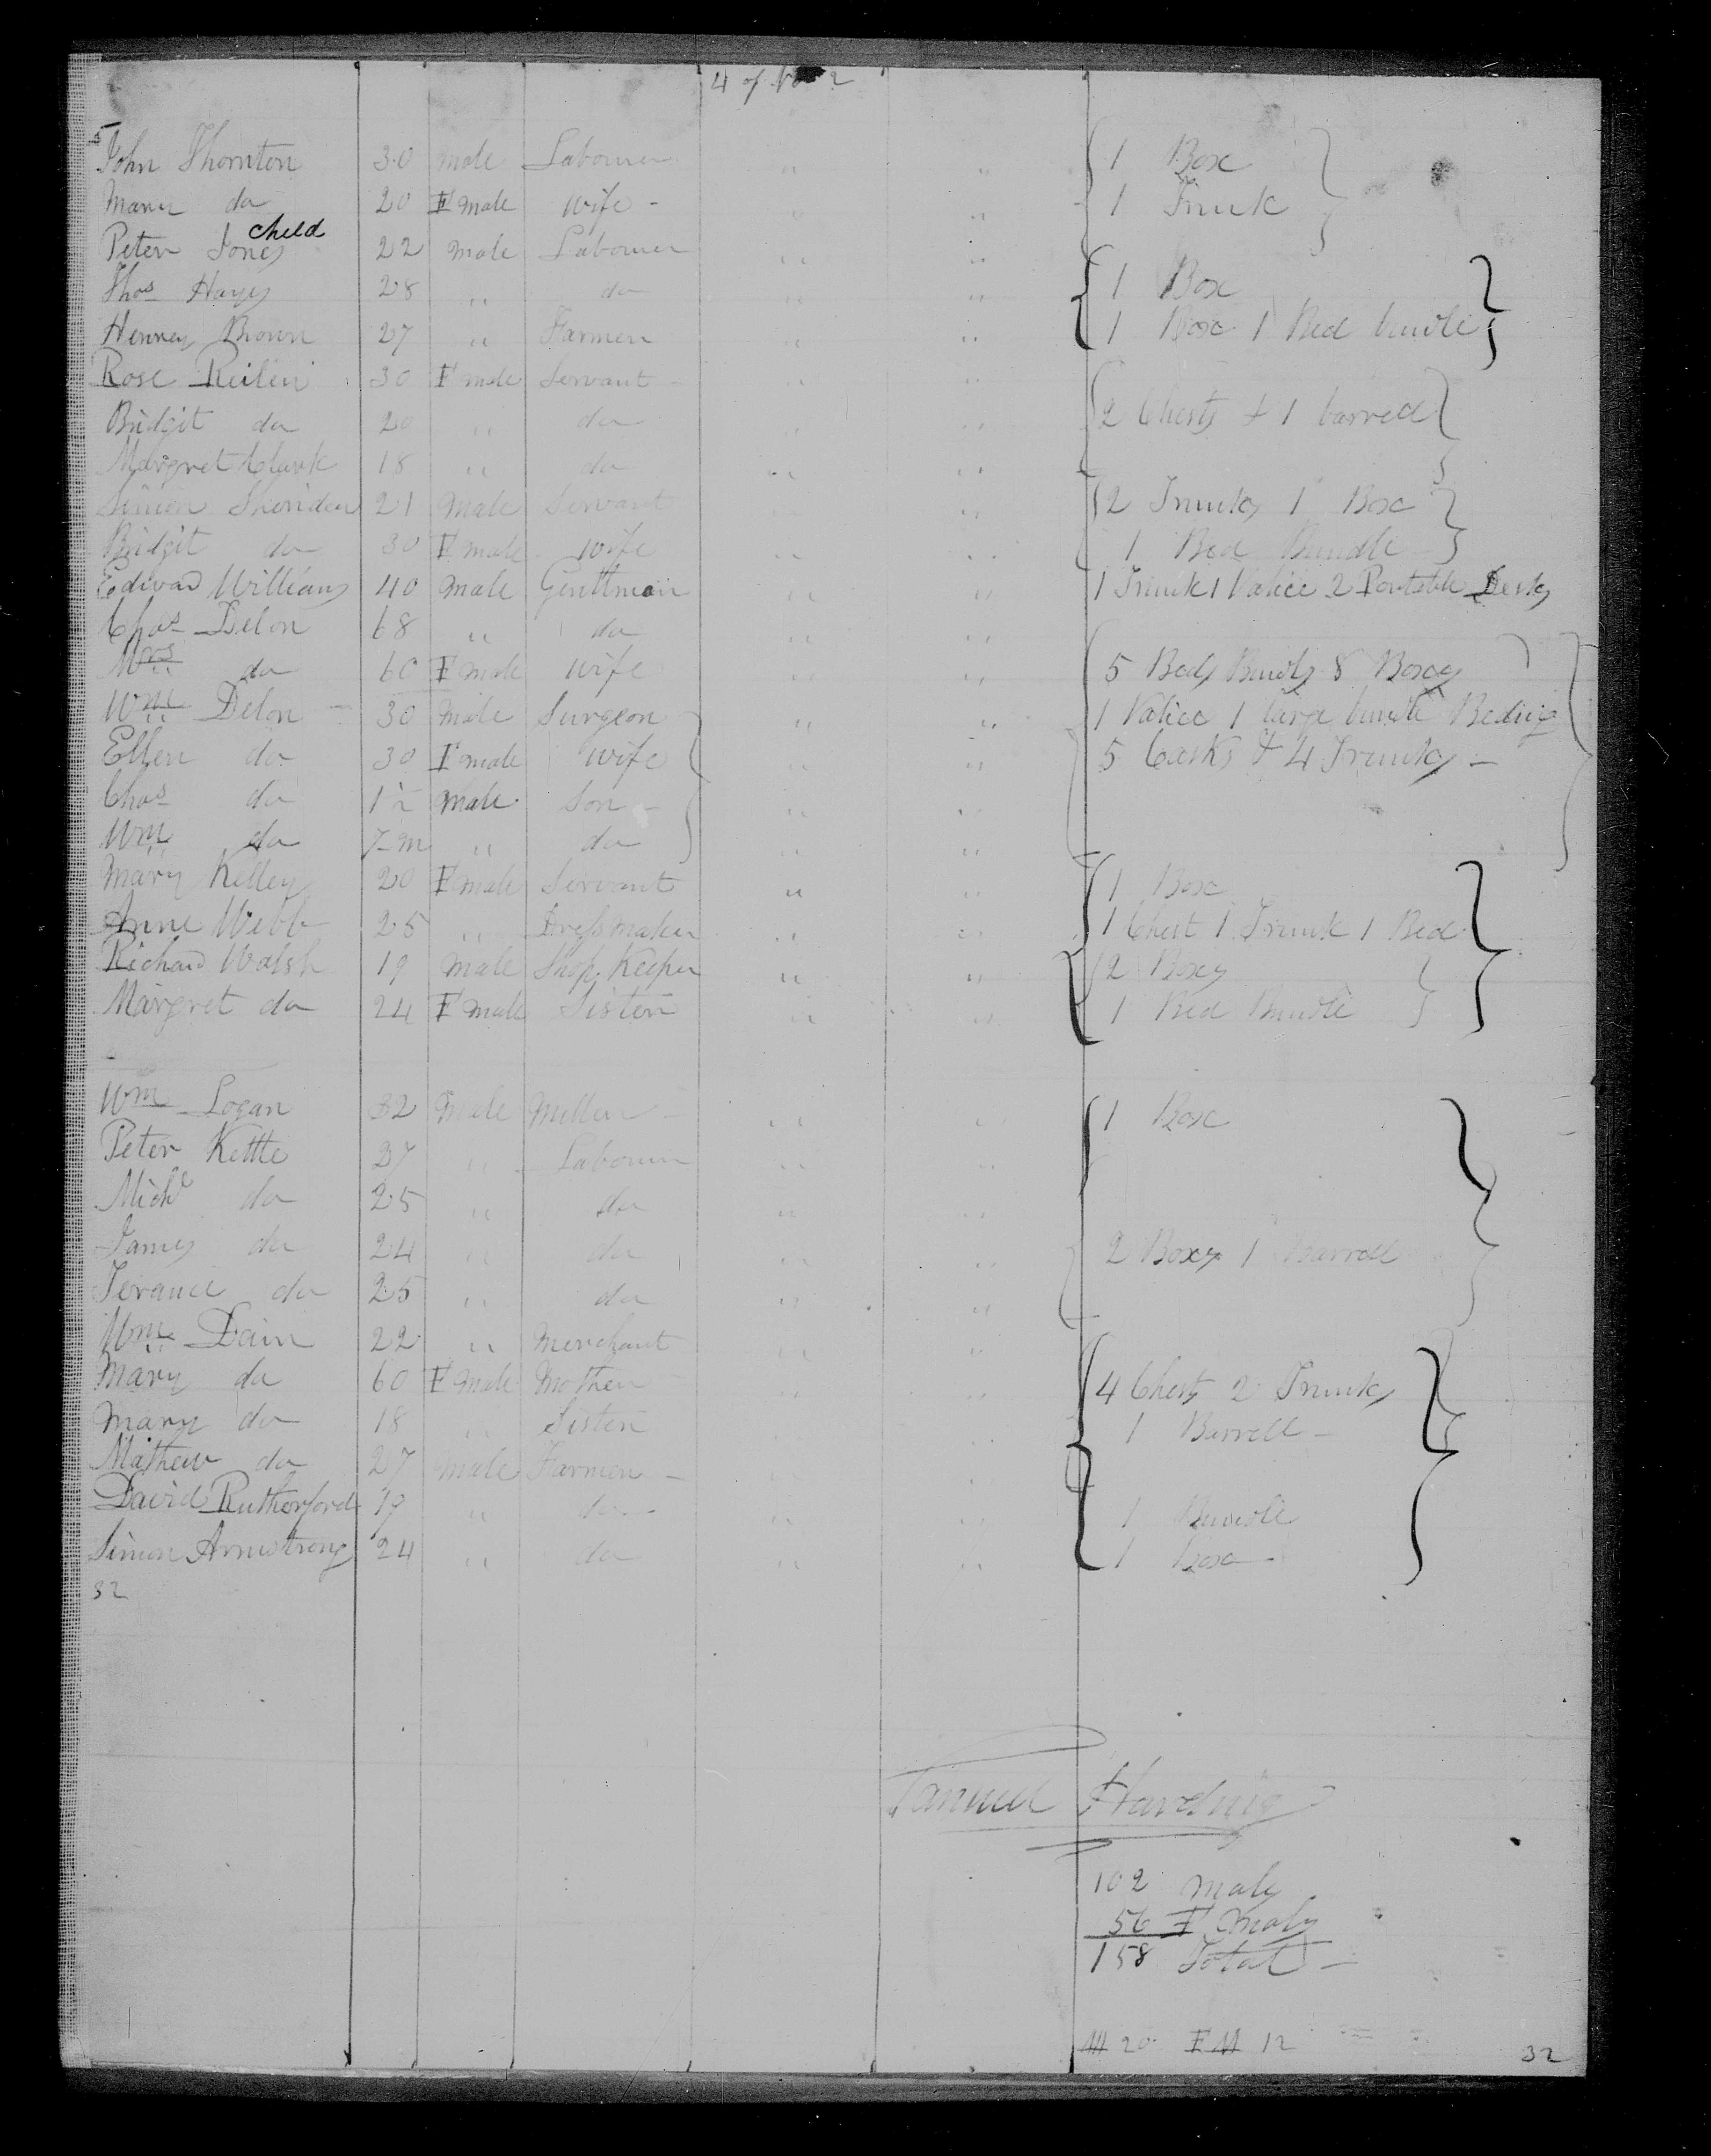 4 of No 2
John Thornton 30 male Labourer " " 1 Box
Mary do 20 F male Wife - " " 1 Trunk
child
Peter Jones 22 male Labourer " "
Thos Hayes 28 " do " " 1 Box
Henney Brown 27 " Farmer " " 1 Box 1 Bed bundle
Rose Reilen 30 F male Servant - " "
Bridgit do 20 " do " " 2 Chests & 1 barrell
Margret Clark 18 " do " "
Simon Sheridan 21 Male Servant " " 2 Trunks 1 Box
Bridgit do 30 F male wife " " 1 Bed Bundle
Edward Williams 40 Male Genttman " " 1 Trunk 1 Valice 2 Portable Desks
Chas Delon 68 " do " "
Mrs do 60 F male Wife " " 5 Beds Bundls 8 Boxes
Wm Delon - 30 Male Surgeon " " 1 Valice 1 large bundle Beding
Ellen do 30 F male Wife " " 5 Casks & 4 Trunks -
Chas do 1½ Male Son - " "
Wm do 7 m " do " "
Mary Kelley 20 F male Servant " " 1 Box
Anne Webb 25 " Dressmaker " " 1 Chest 1 Trunk 1 Bed
Richard Walsh 19 Male Shop Keeper " " 2 Boxes
Margret do 24 F male Sister " " 1 Bed Bundle
Wm Logan 32 Male Miller - " " 1 Box
Peter Kettle 37 " Labourer " "
Michl do 25 " do " "
James do 24 " do " " 2 Boxes 1 Barrell
Terance do 25 " do " "
Wm Dain 22 " Merchant " "
Mary do 60 F male Mother " " 4 Chests 2 Trunks
Mary do 18 " Sister " " 1 Barrell -
Mathew do 27 Male Farmer - " "
David Rutherford 19 " do - " " 1 Bundle
Simon Armstrong 24 " do " " 1 Box -
32
Samuel Harding
102 Males
56 F Males
158 Total -
M 20 F M 12
32